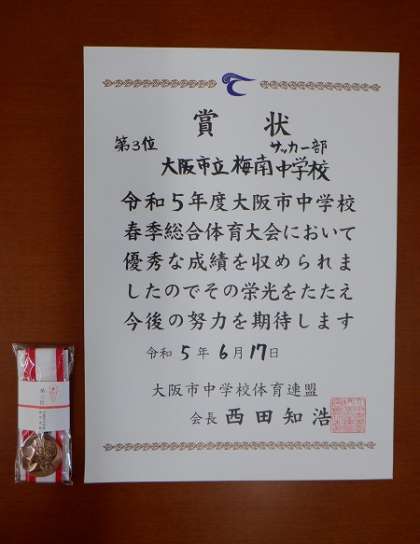 賞状
第3位
サッカー部
大阪市立梅南中学校
令和5年度大阪市中学校
春季総合体育大会において
優秀な成績を収められま
したのでその栄光をたたえ
今後の努力を期待します
令和5年6月17日
大阪市中学校体育連盟
会長 西田知浩